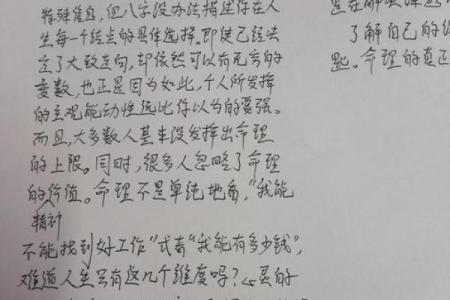 特殊信息，但八字没办法描述你在人
生每一个结点的具体选择。即使已经决
定了大致走向，却依然可以有无穷的
变数，也正是因为如此，个人所发挥
的主观能动性远比你以为的要强。
而且，大多数人基本没发挥出命理
的上限。同时，很多人忽略了命理
的价值。命理不是单纯地看，“我能
精神
不能找到好工作”或者“我能有多少钱”，
难道人生只有这几个维度吗？心灵的
了解自己的
匙。命理的真正